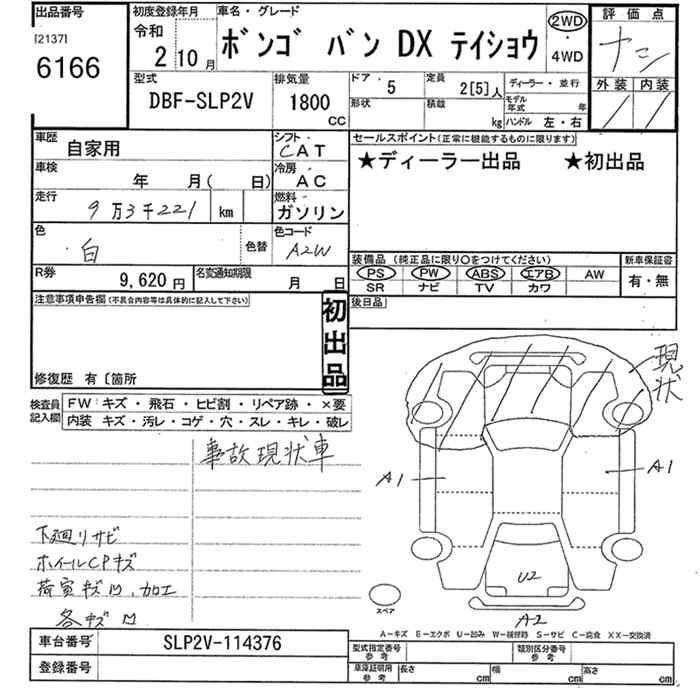 出品番号
[2137]
6166
初度登録年月
令和
2 10月
車名・グレード
ﾎﾞﾝｺﾞ ﾊﾞﾝ DX ﾃｲｼｮｳ
2WD
・
4WD
評価点
外装 内装
型式
DBF-SLP2V
排気量
1800
cc
ドア・ 5
形状
定員
2[5]人
積載
kg
ディーラー・並行
モデル年式 年
ハンドル 左・右
車歴
自家用
シフト・
CAT
車検
年 月( 日)
冷房
AC
走行
9万3千221 km
燃料
ガソリン
色
白
色替
色コード
A2W
R券
9,620 円
名変通知期限
月 日
セールスポイント(正常に機能するものに限ります)
★ディーラー出品 ★初出品
装備品 (純正品に限り○をつけてください)
新車保証書
PS PW ABS エアB AW
SR ナビ TV カワ
有・無
後日品
注意事項申告欄(不具合内容等は具体的に記入して下さい)
初出品
修復歴 有〔箇所
検査員記入欄
FW: キズ・飛石・ヒビ割・リペア跡・×要
内装 キズ・汚レ・コゲ・穴・スレ・キレ・破レ
事故現状車
下廻リサビ
ホイールCPキズ
荷室キズ凹、加工
各キズ凹
現状
A1
A1
U2
A2
スペア
A-キズ E-エクボ U-凹み W-補修跡 S-サビ C-腐食 XX-交換済
車台番号
SLP2V-114376
登録番号
型式指定番号
参考
類別区分番号
参考
車庫証明用
参考
長さ cm
幅 cm
高さ cm